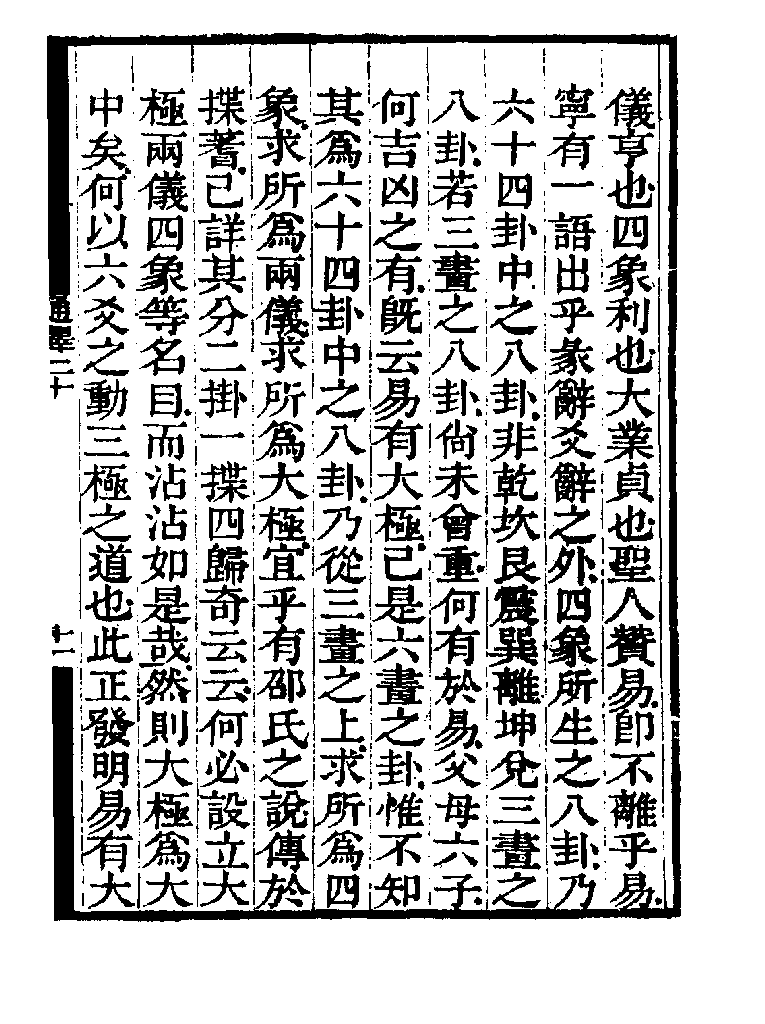 儀亨也四象利也大業貞也聖人贊易卽不離乎易
寧有一語出乎彖辭爻辭之外四象所生之八卦乃
六十四卦中之八卦非乾坎艮震巽離坤兌三畫之
八卦若三畫之八卦尙未曾重何有於易父母六子
何吉凶之有旣云易有大極已是六畫之卦惟不知
其爲六十四卦中之八卦乃從三畫之上求所爲四
象求所爲兩儀求所爲大極宜乎有邵氏之說傳於
揲蓍已詳其分二掛一揲四歸奇云云何必設立大
極兩儀四象等名目而沾沾如是哉然則大極爲大
中矣何以六爻之動三極之道也此正發明易有大
通釋二十
十一